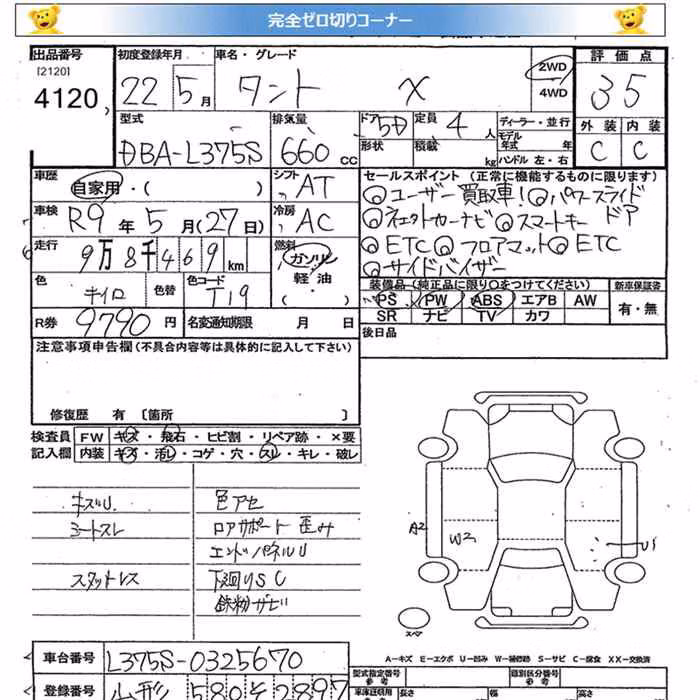 完全ゼロ切りコーナー
出品番号
[2120]
4120
初度登録年月
22 5 月
車名・グレード
タント X
2WD
4WD
評価点
35
外装 内装
C C
型式
DBA-L375S
排気量
660 cc
ドア 5D
形状
定員 4 人
積載 kg
ディーラー・並行
モデル
年式 年
ハンドル 左・右
車歴
自家用・( )
シフト
AT
セールスポイント (正常に機能するものに限ります)
ユーザー買取車! パワースライド
ドア
カーナビ スマートキー
ETC フロアマット ETC
サイドバイザー
車検
R9 年 5 月(27日)
冷房
AC
走行
9万8千469 km
燃料
ガソリン
軽油
( )
色
キイロ
色替
色コード
T19
装備品(純正品に限り○をつけてください)
PS PW ABS エアB AW
SR ナビ TV カワ
新車保証書
有・無
R券 9790 円
名変通知期限 月 日
後日品
注意事項申告欄(不具合内容等は具体的に記入して下さい)
修復歴 有 〔箇所 〕
検査員
記入欄
FW キズ・飛石・ヒビ割・リペア跡・×要
内装 キズ・汚レ・コゲ・穴・スレ・キレ・破レ
キズU
シートスレ
スタットレス
色アセ
ロアサポート歪み
エンドパネルU
下廻りSC
鉄粉サビ
A2
W2
U1
スペア
A-キズ E-エクボ U-凹み W-補修跡 S-サビ C-腐食 XX-交換済
車台番号 L375S-0325670
登録番号 山形 580 そ 2897
型式指定番号
参考
類別区分番号
参考
車庫証明用
長さ
幅
高さ